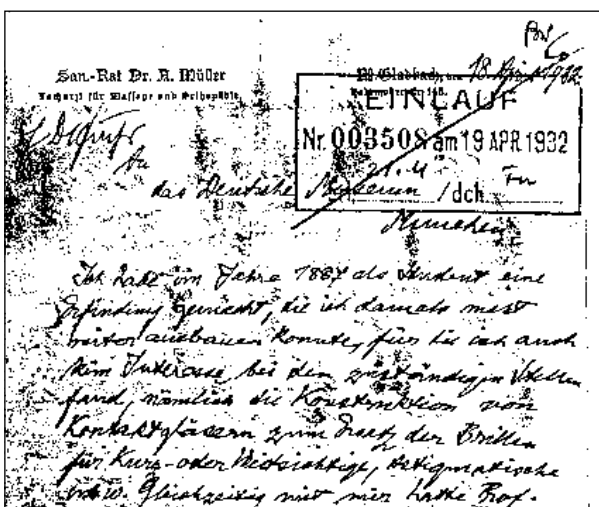 San.-Rat Dr. A. Müller
Facharzt für Massage und Orthopädie
M. Gladbach, 18. April 1932
EINLAUF
Nr. 003508 am 19 APR. 1932
21. 4. /dch.
An
das Deutsche Museum
München
Ich habe im Jahre 1887 als Student eine
Erfindung gemacht, die ich damals nicht
weiter ausbauen konnte, für die ich auch
kein Interesse bei den zuständigen Stellen
fand, nämlich die Konstruktion von
Kontaktgläsern zum Ersatz der Brillen
für Kurz- oder Weitsichtige, Astigmatische
usw. Gleichzeitig mit mir hatte Prof.